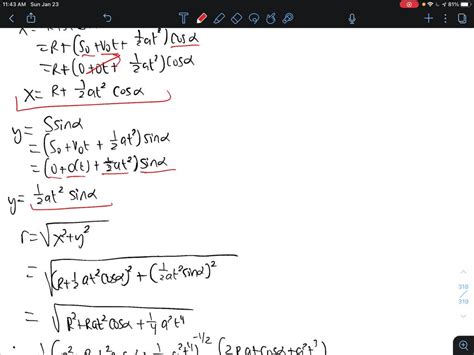 11:43 AM Sun Jan 23
81%
= R + (S₀ + V₀t + ½at²) cosα
= R + (0 + 0t + ½at²) cosα
X = R + ½at² cosα
y = S sinα
= (S₀ + V₀t + ½at²) sinα
= (0 + 0(t) + ½at²) sinα
y = ½at² sinα
r = √(x² + y²)
= √((R + ½at² cosα)² + (½at² sinα)²)
= √(R² + Rat² cosα + ¼a²t⁴)
318
319